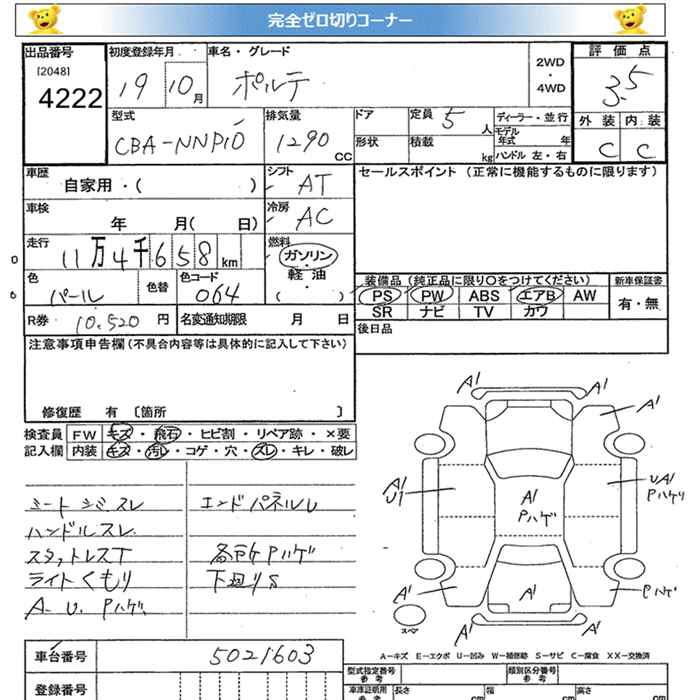 完全ゼロ切りコーナー
出品番号 初度登録年月 車名・グレード 評価点
[2048]
4222 19 10月 ポルテ 2WD・4WD 3.5
型式 排気量 ドア 定員 5人 ディーラー・並行 外装 内装
CBA-NNP10 1290 CC 形状 積載 kg モデル年式 年 ハンドル 左・右 C C
車歴 シフト セールスポイント (正常に機能するものに限ります)
自家用・( ) AT
車検 冷房
年 月( 日) AC
走行 燃料
11万4千658 km ガソリン・軽油
色 色替 色コード ( ) 装備品 (純正品に限り○をつけてください) 新車保証書
パール 064 PS PW ABS エアB AW 有・無
SR ナビ TV カワ
R券 10,520 円 名変通知期限 月 日 後日品
注意事項申告欄(不具合内容等は具体的に記入して下さい)
修復歴 有 〔箇所 〕
検査員 FW キズ・飛石・ヒビ割・リペア跡・×要
記入欄 内装 キズ・汚レ・コゲ・穴・スレ・キレ・破レ
シートシミスレ エンドパネルU
ハンドルスレ
スタットレスT 各所Pハゲ
ライトくもり 下廻りS
A. U. Pハゲ
A1 A1
A1
A1 U1 A1 Pハゲ UA1 Pハゲリ
A1 A1 Pハゲ
スペア A1 A1
A-キズ E-エクボ U-凹み W-補修跡 S-サビ C-腐食 XX-交換済
車台番号 5021603 型式指定番号 参考 類別区分番号 参考
登録番号 車庫証明用 参考 長さ cm 幅 cm 高さ cm